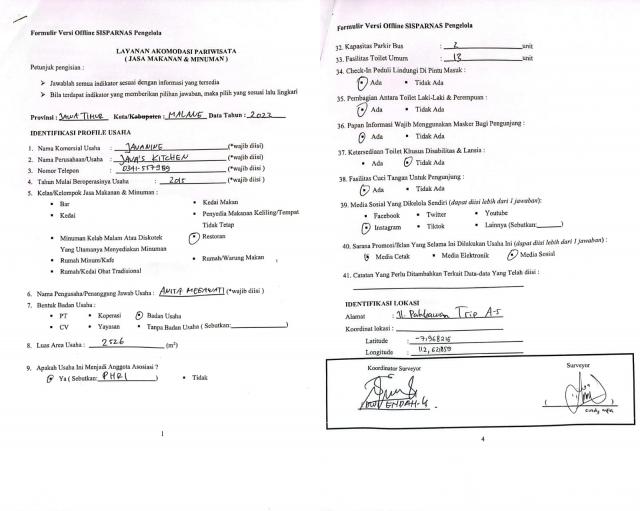 Formulir Versi Offline SISPARNAS Pengelola
LAYANAN AKOMODASI PARIWISATA
( JASA MAKANAN & MINUMAN )
Petunjuk pengisian :
➢ Jawablah semua indikator sesuai dengan informasi yang tersedia
➢ Bila terdapat indikator yang memberikan pilihan jawaban, maka pilih yang sesuai lalu lingkari
Provinsi : JAWA TIMUR Kota/Kabupaten : MALANG Data Tahun : 2022
IDENTIFIKASI PROFILE USAHA
1. Nama Komersial Usaha : JAVANINE (*wajib diisi)
2. Nama Perusahaan/Usaha : JAVA'S KITCHEN (*wajib diisi)
3. Nomor Telepon : 0341-557989 (*wajib diisi)
4. Tahun Mulai Beroperasinya Usaha : 2015 (*wajib diisi )
5. Kelas/Kelompok Jasa Makanan & Minuman :
• Bar
• Kedai Makan
• Kedai
• Penyedia Makanan Keliling/Tempat
Tidak Tetap
• Minuman Kelab Malam Atau Diskotek
Yang Utamanya Menyediakan Minuman
• Restoran
• Rumah Minum/Kafe
• Rumah/Warung Makan
• Rumah/Kedai Obat Tradisional
6. Nama Pengusaha/Penanggung Jawab Usaha : ANITA MEGAWATI (*wajib diisi )
7. Bentuk Badan Usaha :
• PT • Koperasi • Badan Usaha
• CV • Yayasan • Tanpa Badan Usaha ( Sebutkan: )
8. Luas Area Usaha : 2526 (m²)
9. Apakah Usaha Ini Menjadi Anggota Asosiasi ?
• Ya ( Sebutkan: PHRI ) • Tidak
1
Formulir Versi Offline SISPARNAS Pengelola
32. Kapasitas Parkir Bus : 2 unit
33. Fasilitas Toilet Umum : 13 unit
34. Check-In Peduli Lindungi Di Pintu Masuk :
• Ada • Tidak Ada
35. Pembagian Antara Toilet Laki-Laki & Perempuan :
• Ada • Tidak Ada
36. Papan Informasi Wajib Menggunakan Masker Bagi Pengunjung :
• Ada • Tidak Ada
37. Ketersediaan Toilet Khusus Disabilitas & Lansia :
• Ada • Tidak Ada
38. Fasilitas Cuci Tangan Untuk Pengunjung :
• Ada • Tidak Ada
39. Media Sosial Yang Dikelola Sendiri (dapat diisi lebih dari 1 jawaban):
• Facebook • Twitter • Youtube
• Instagram • Tiktok • Lainnya (Sebutkan: )
40. Sarana Promosi/Iklan Yang Selama Ini Dilakukan Usaha Ini (dapat diisi lebih dari 1 jawaban) :
• Media Cetak • Media Elektronik • Media Sosial
41. Catatan Yang Perlu Ditambahkan Terkait Data-data Yang Telah diisi :
IDENTIFIKASI LOKASI
Alamat : Jl. Pahlawan Trip A-5
Koordinat lokasi :
Latitude : -7,968215
Longitude : 112,621859
Koordinator Surveyor
Surveyor
ENDAH
4